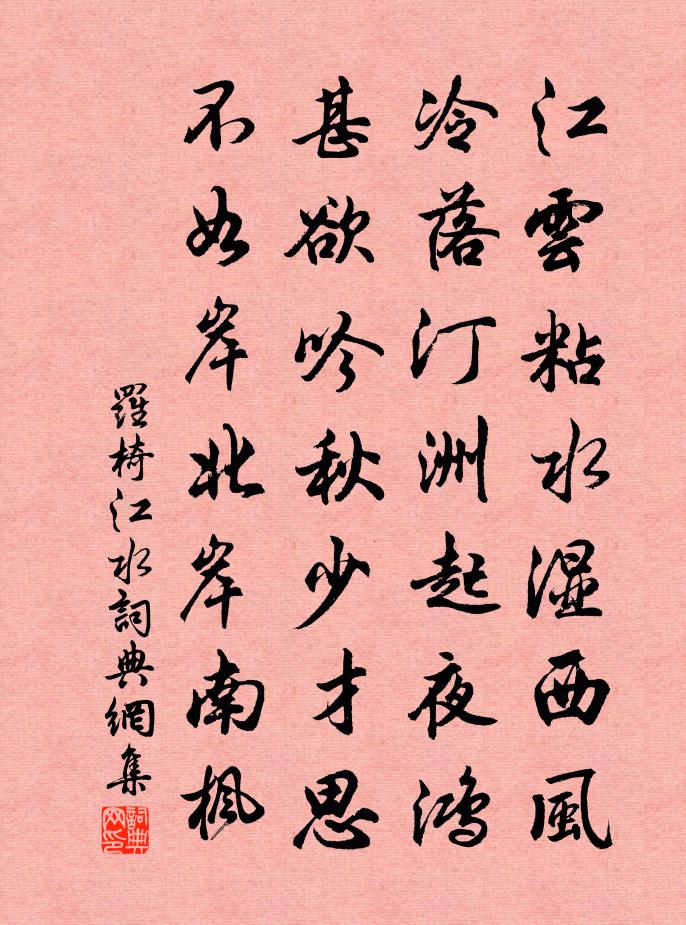 江雲粘水濕西風
冷落汀洲起夜鴻
甚欲吟秋少才思
不如岸北岸南楓
羅椅江水詞典網集
詞典网印